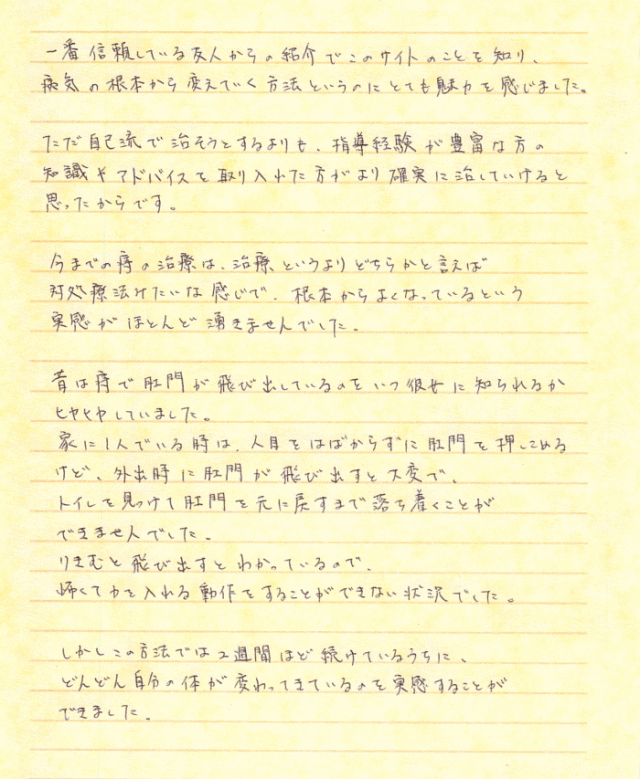 一番信頼している友人からの紹介でこのサイトのことを知り、
病気の根本から変えていく方法というのにとても魅力を感じました。
ただ自己流で治そうとするよりも、指導経験が豊富な方の
知識やアドバイスを取り入れた方がより確実に治していけると
思ったからです。
今までの痔の治療は、治療というよりどちらかと言えば
対処療法みたいな感じで、根本からよくなっているという
実感がほとんど湧きませんでした。
昔は痔で肛門が飛び出しているのをいつ彼女に知られるか
ヒヤヒヤしていました。
家に1人でいる時は、人目をはばからずに肛門を押しこめる
けど、外出時に肛門が飛び出すと大変で、
トイレを見つけて肛門を元に戻すまで落ち着くことが
できませんでした。
りきむと飛び出すとわかっているので、
怖くて力を入れる動作をすることができない状況でした。
しかしこの方法では2週間ほど続けているうちに、
どんどん自分の体が変わってきているのを実感することが
できました。